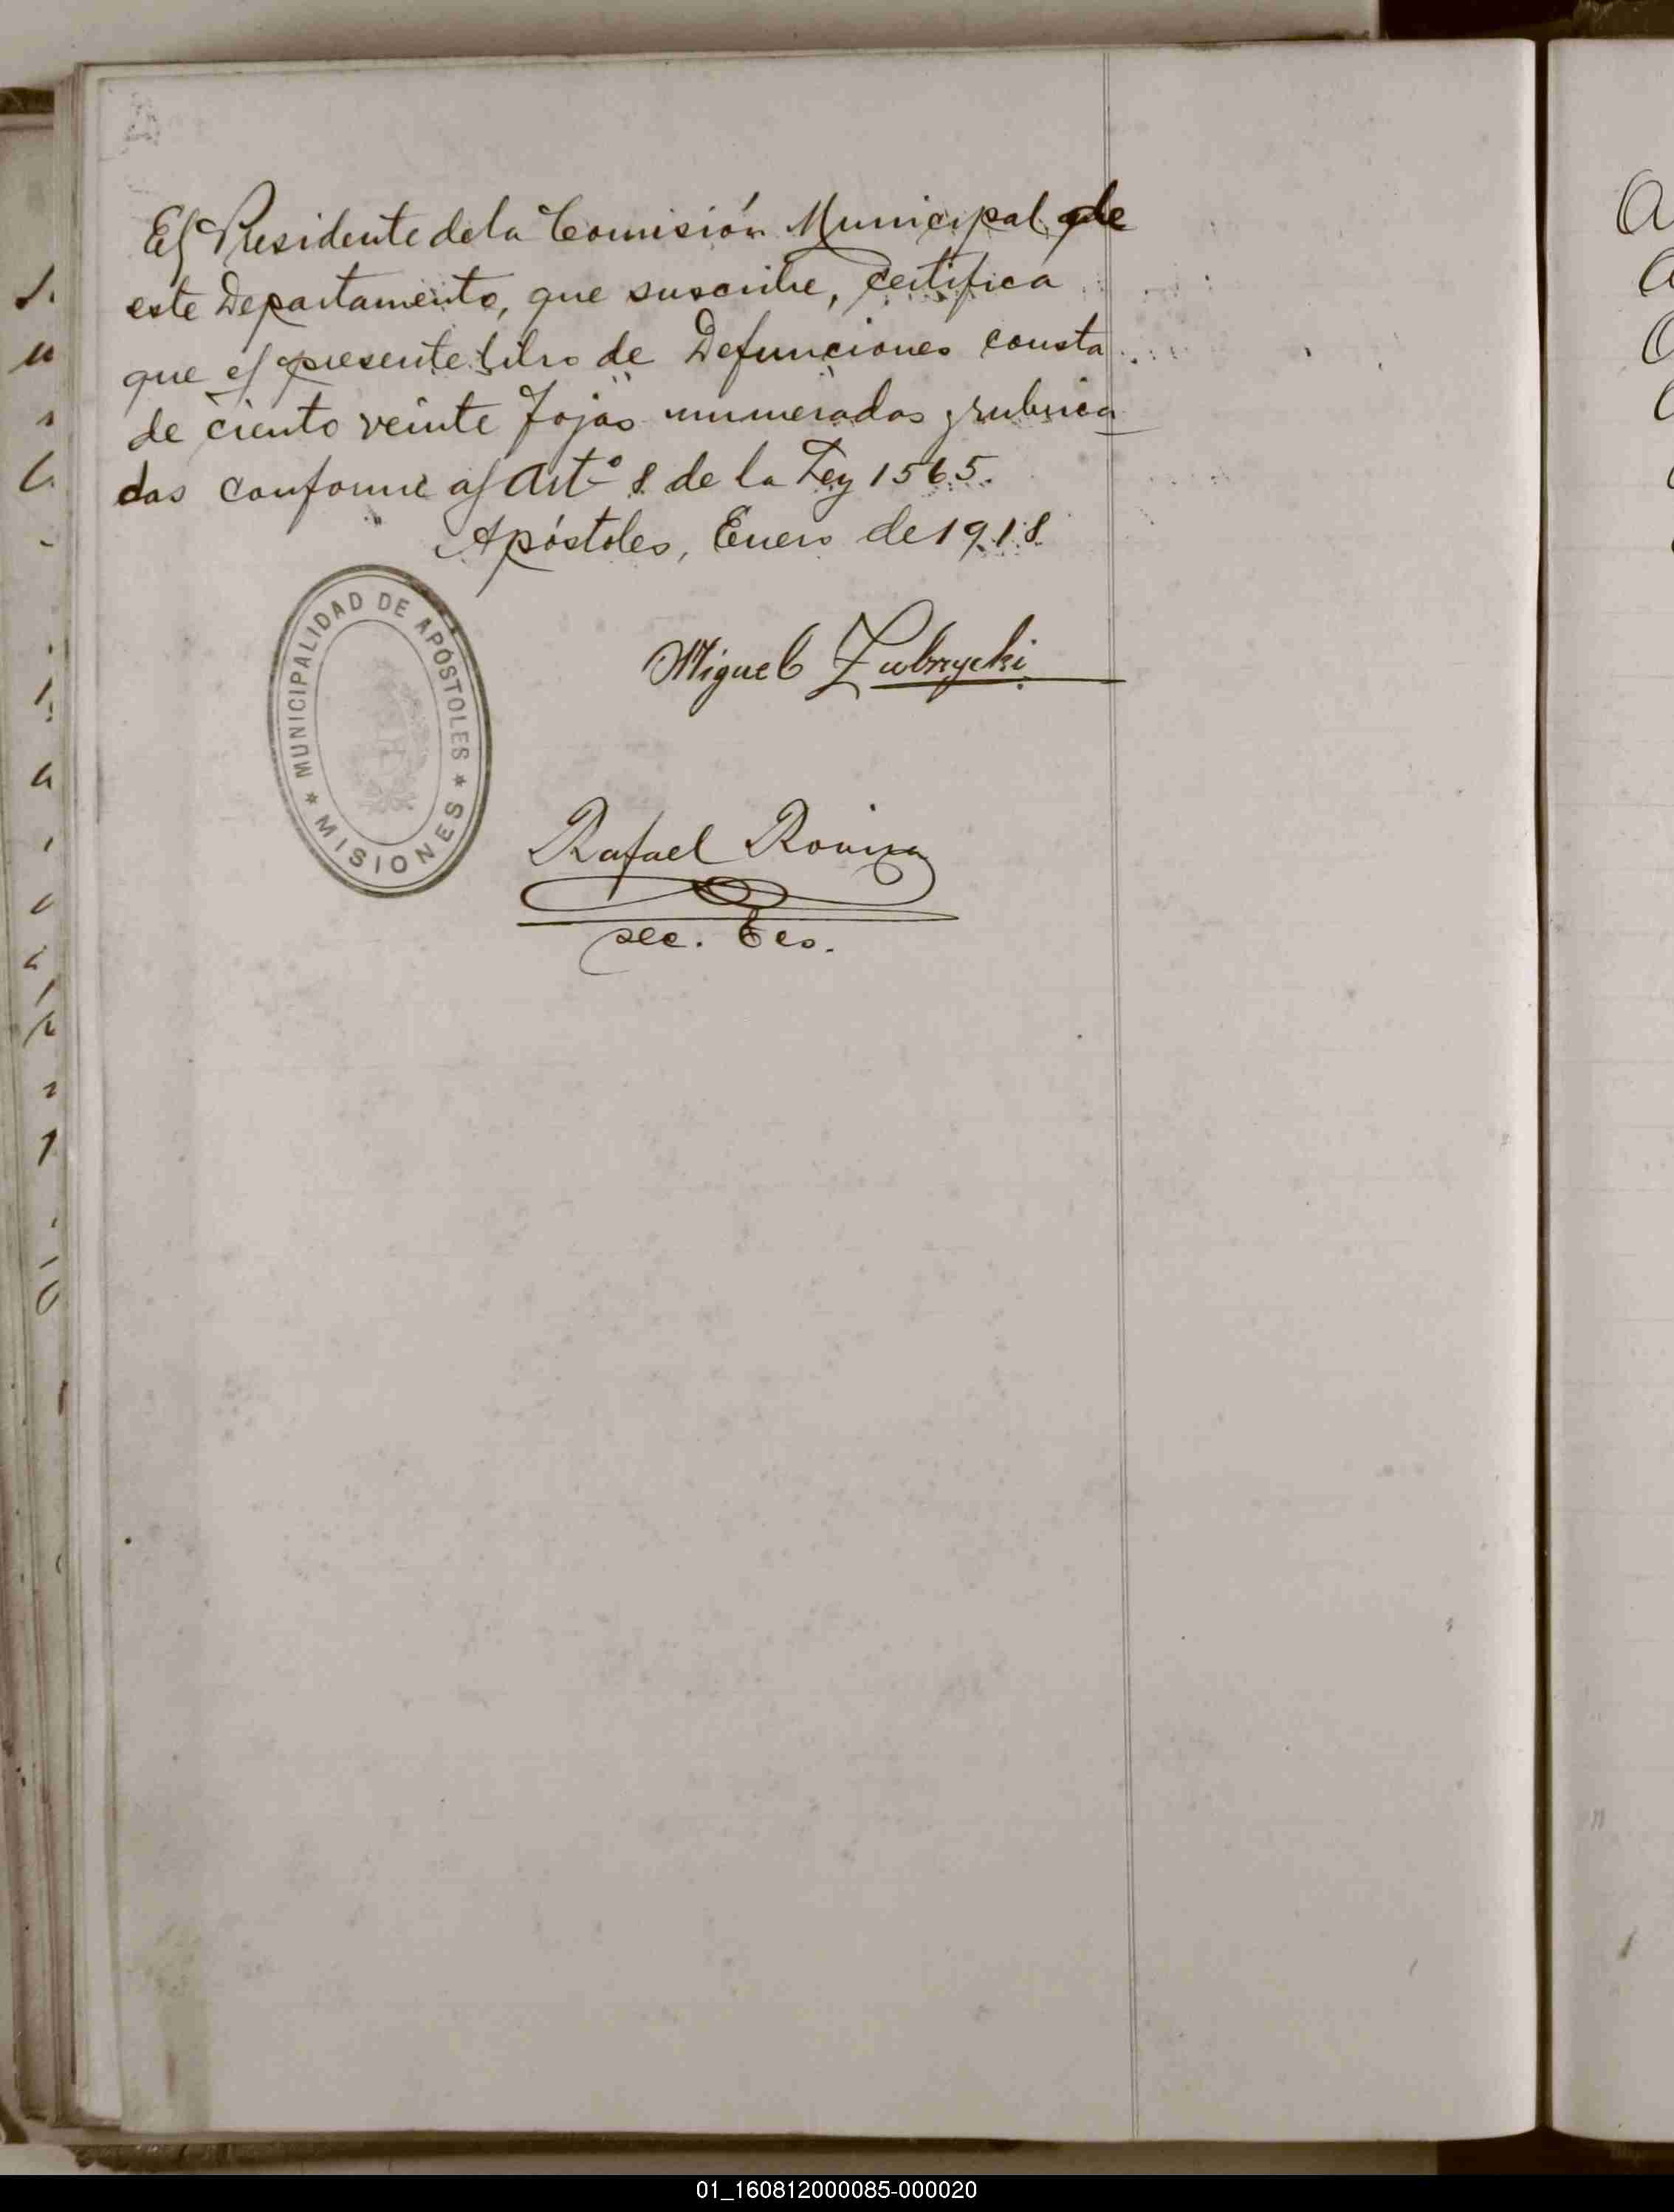 El Presidente de la Comisión Municipal de
este Departamento, que suscribe, certifica
que el presente libro de Defunciones consta
de ciento veinte fojas numeradas y rubrica
das conforme al Art.º 8 de la Ley 1565.
Apóstoles, Enero de 1918.
MUNICIPALIDAD DE APÓSTOLES
* MISIONES *
Miguel Zubrzycki
Rafael
sec. Tes.
01_160812000085-000020